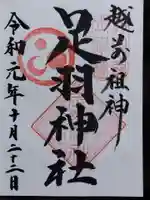 越前の祖神
足羽神社
令和元年十月二十二日